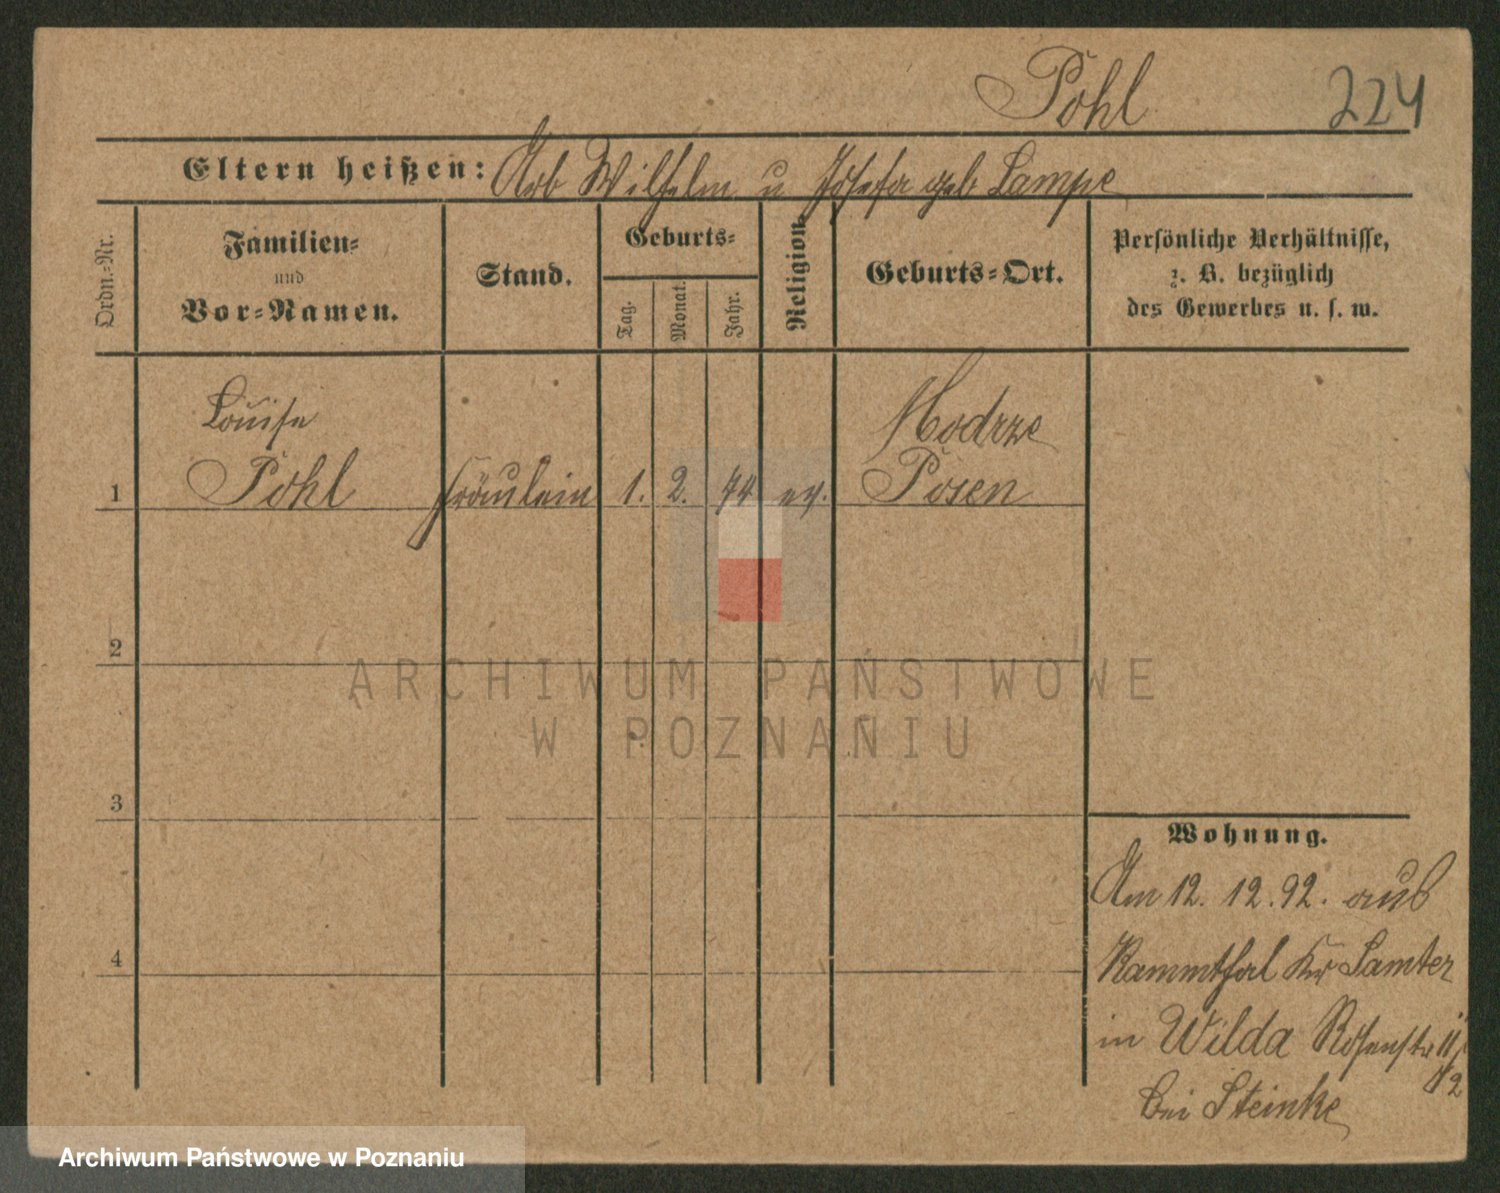 Pohl
224
Eltern heißen: Arb Wilhelm u Josefa geb Lampe
Ordn.-Nr.
Familien-
und
Vor-Namen.
Stand.
Geburts-
Tag.
Monat.
Jahr.
Religion.
Geburts-Ort.
Persönliche Verhältnisse,
z. B. bezüglich
des Gewerbes u. s. w.
Louise
Modrze
1 Pohl Fräulein 1. 2. 74 ev. Posen
2
ARCHIWUM PAŃSTWOWE
W POZNANIU
3
Wohnung.
Am 12. 12. 92. aus
4
Kammthal Kr Samter
in Wilda Rosenstr 11/2
bei Steinke
Archiwum Państwowe w Poznaniu